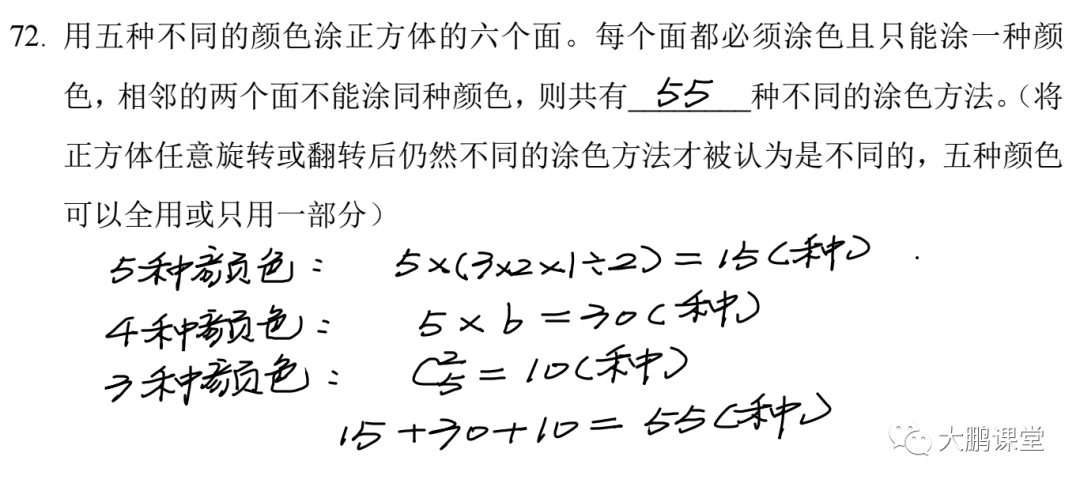 72. 用五种不同的颜色涂正方体的六个面。每个面都必须涂色且只能涂一种颜
色，相邻的两个面不能涂同种颜色，则共有 55 种不同的涂色方法。（将
正方体任意旋转或翻转后仍然不同的涂色方法才被认为是不同的，五种颜色
可以全用或只用一部分）
5种颜色： 5×(3×2×1÷2)=15(种)
4种颜色： 5×6=30(种)
3种颜色： C²₅=10(种)
15+30+10=55(种)
大鹏课堂